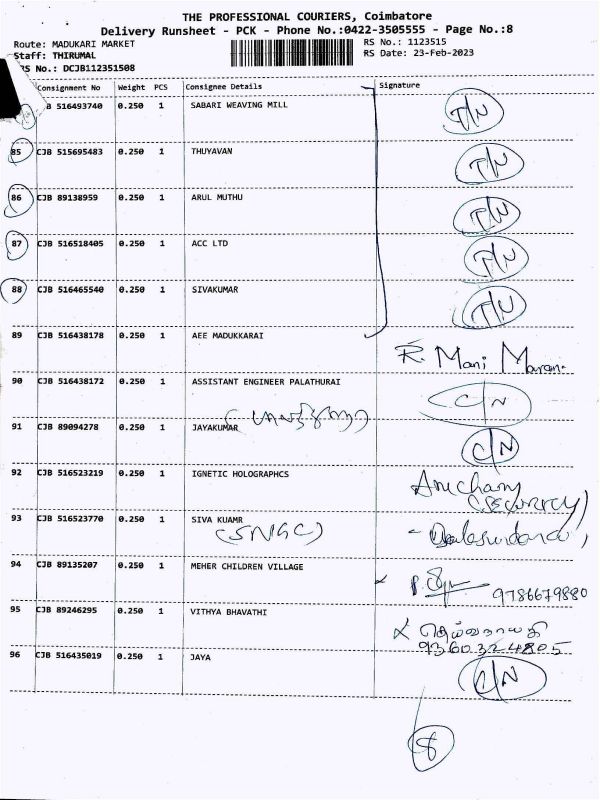 THE PROFESSIONAL COURIERS, Coimbatore
Delivery Runsheet - PCK - Phone No.:0422-3505555 - Page No.:8
Route: MADUKARI MARKET RS No.: 1123515
Staff: THIRUMAL RS Date: 23-Feb-2023
RS No.: DCJB112351508
Consignment No Weight PCS Consignee Details Signature
JB 516493740 0.250 1 SABARI WEAVING MILL T/N
85 CJB 515695483 0.250 1 THUYAVAN T/N
86 CJB 89138959 0.250 1 ARUL MUTHU T/N
87 CJB 516518405 0.250 1 ACC LTD T/N
88 CJB 516465540 0.250 1 SIVAKUMAR T/N
89 CJB 516438178 0.250 1 AEE MADUKKARAI R. Mani Maran.
90 CJB 516438172 0.250 1 ASSISTANT ENGINEER PALATHURAI C/N
91 CJB 89094278 0.250 1 JAYAKUMAR C/N
92 CJB 516523219 0.250 1 IGNETIC HOLOGRAPHCS
93 CJB 516523770 0.250 1 SIVA KUAMR
(SNGC)
94 CJB 89135207 0.250 1 MEHER CHILDREN VILLAGE 9786679880
95 CJB 89246295 0.250 1 VITHYA BHAVATHI தெய்வநாயகி
9360324805
96 CJB 516435019 0.250 1 JAYA C/N
8